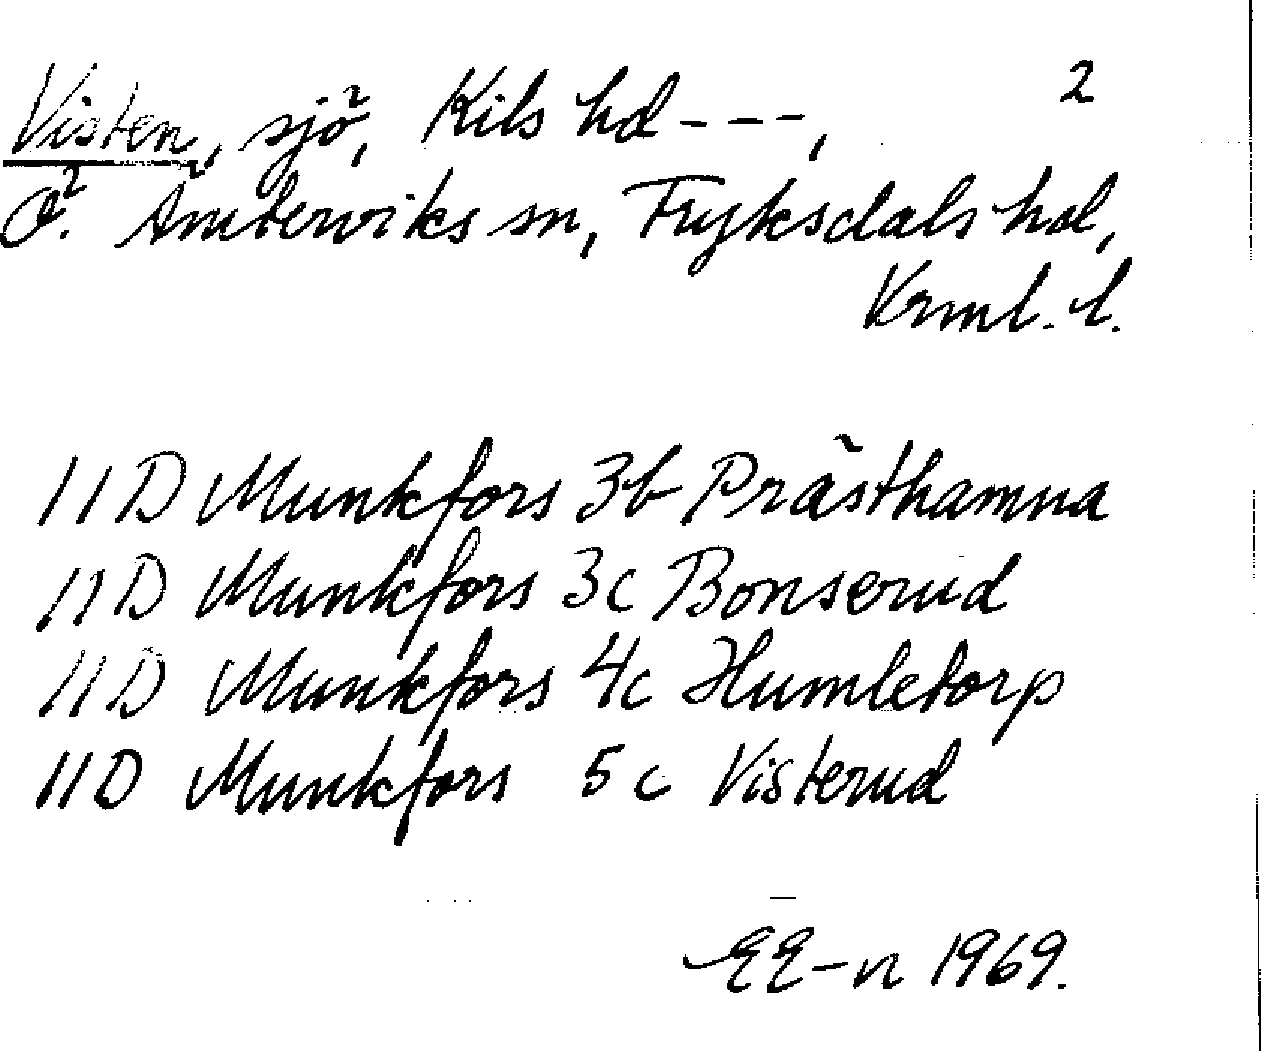 Visten, sjö, Kils hd ---, 2
Ö. Ämterviks sn, Fryksdals hd,
Vrml. l.
11D Munkfors 3b Prästhamna
11D Munkfors 3c Bonserud
11D Munkfors 4c Humletorp
11D Munkfors 5c Visterud
EE-n 1969.